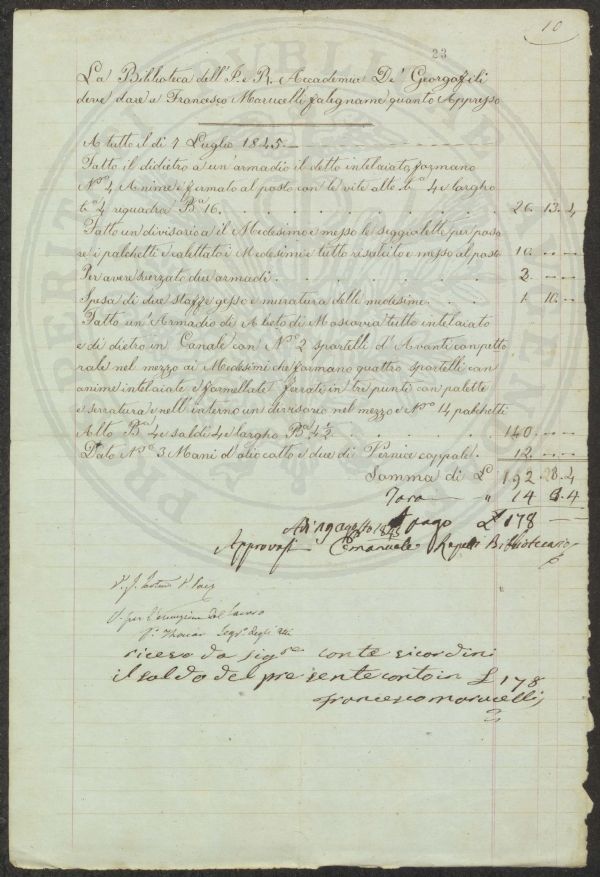 10
23
La Biblioteca dell' I. e R. Accademia De' Georgofili
deve dare a Francesco Marucelli falegname quanto Appresso
A tutto il dì 7 Luglio 1845.
Fatto il didietro a un'armadio il detto intelaiato, formano
N.ro 4 Anime e fermato al posto con le vite alto b.a 4 e largho
b.a 4 riquadra B.a 16. 26. 13. 4
Fatto un divisorio a il Medesimo e messo le seggiolette per posa
re i palchetti e calettati i Medesimi e tutto risalcito e messo al posto 10. --
Per avere sverzato due armadi. 3. --
Spesa di due staffe gesso e muratura delle medesime. 1. 10. --
Fatto un'Armadio di Abeto di Moscovia tutto intelaiato
e di dietro in Canale con N.ro 2 sportelli d'Avanti con petto
rale nel mezzo ai Medesimi che formano quattro sportelli con
anime intelaiate e formellate ferrate in tre punti con palette
e serratura e nell'interno un divisorio nel mezzo e N.ro 14 palchetti
Alto B.a 4 e saldi 4 e largho B.a 4 1/2 140. --
Dato N.ro 3 Mani d'olio cotto e due di Vernice coppale. 12. --
Somma di L. 192. 3. 4
Tara " 14 3. 4
Adì 19 agosto 1845 pago £ 178 --
Approvasi Emanuele Repetti Bibliotecario
V. per l'esecuzione del lavoro
Seg.o degli Atti
ricevo da sig.re conte ricordini
il saldo del presente conto in £ 178
francesco marucelli